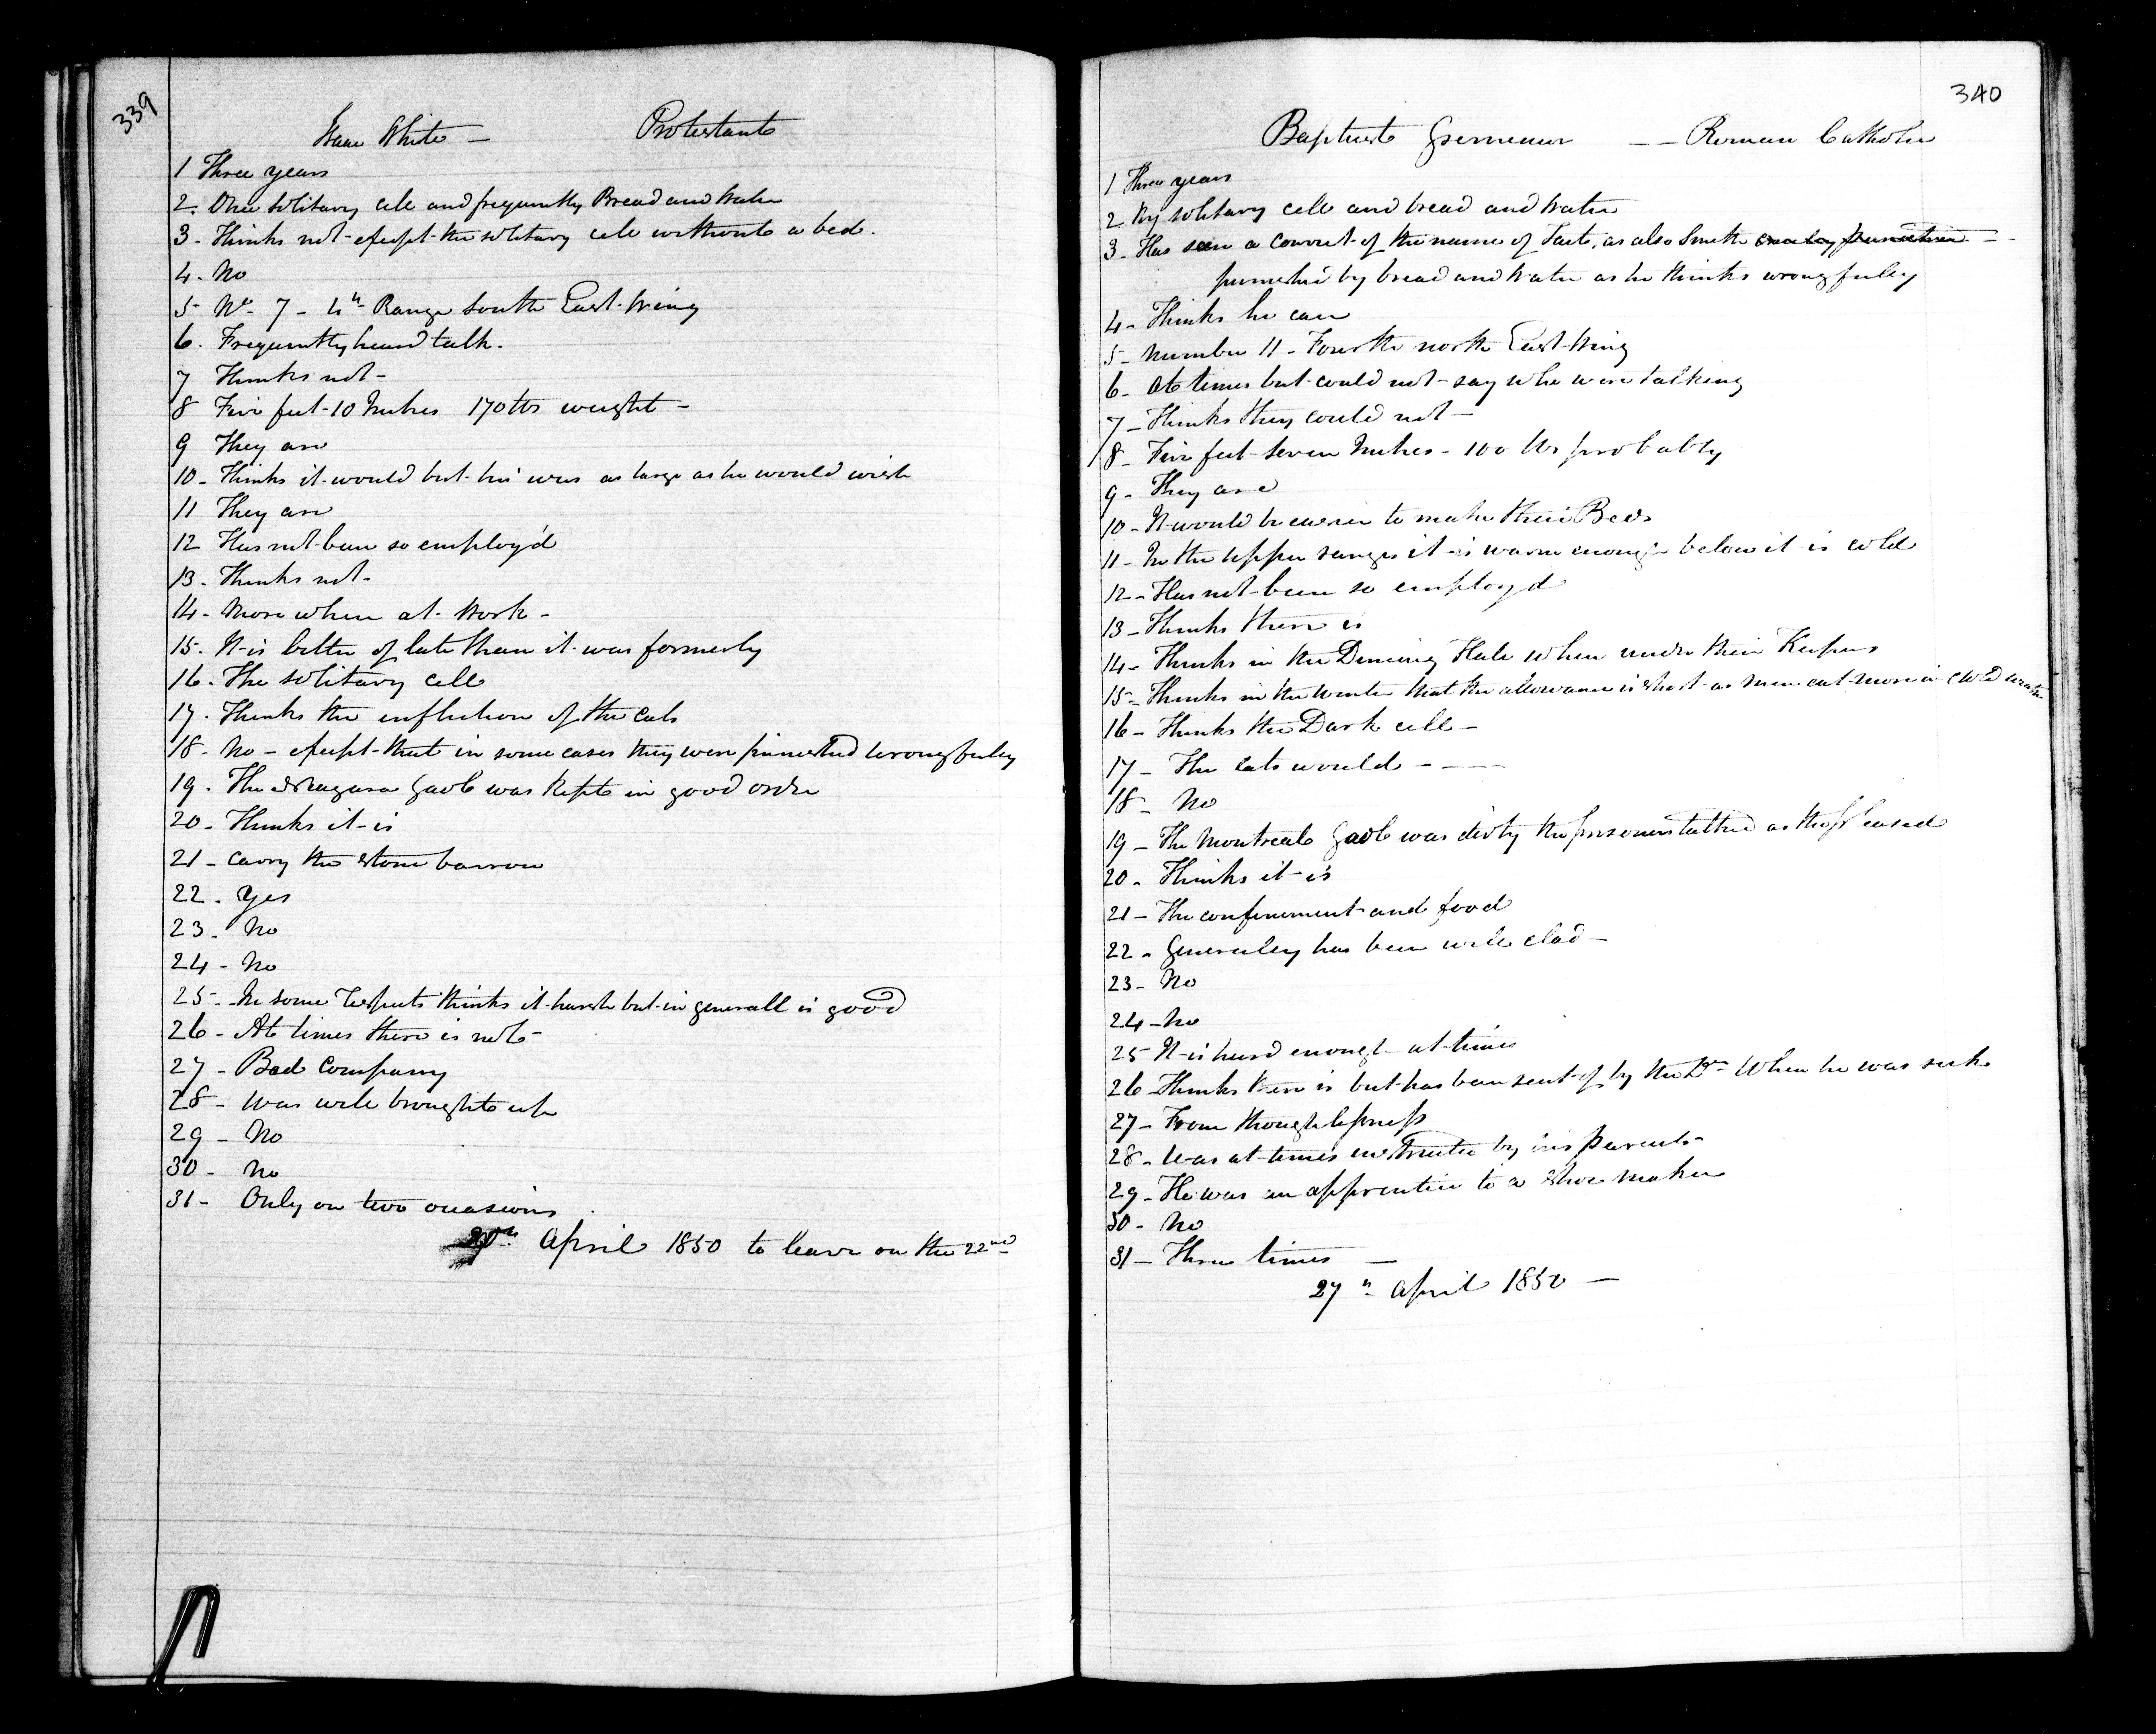 339
Isaac White — Protestant
1 Three years
2. Once solitary cell and frequently Bread and Water
3 - Thinks not - except the solitary cell without a bed.
4 - No
5 - No. 7 - 4th Range South East Wing
6. Frequently heard talk.
7 Thinks not -
8 Five feet 10 Inches 170 lbs weight -
9 They are
10 - Thinks it would but his was as large as he would wish
11 They are
12 Has not been so employ'd
13 - Thinks not -
14 - More when at work -
15 - It is better of late than it was formerly
16 - The solitary cell
17 - Thinks the infliction of the cats
18 - No - except that in some cases they were punished wrongfully
19 - The Niagara Gaol was kept in good order
20 - Thinks it is
21 - Carry the stone barrow
22 - Yes
23 - No
24 - No
25 - In some respects thinks it harsh but in generall is good
26 - At times there is not -
27 - Bad Company
28 - Was well brought up
29 - No
30 - No
31 - Only on two occasions
20th April 1850 to leave on the 22nd
340
Baptiste — — Roman Catholic
1 Three years
2 By solitary cell and bread and water
3 - Has seen a convict of the name of Tait, as also Smith
punished by bread and water as he thinks wrongfully
4 - Thinks he can
5 - Number 11 - Fourth north East Wing
6 - At times but could not - say who were talking
7 - Thinks they could not -
8 - Five feet seven Inches - 160 lbs probably
9 - They are
10 - It would be easier to make their Beds
11 - In the upper ranges it is warm enough below it is cold
12 - Has not been so employ'd
13 - Thinks there is
14 - Thinks in the Dineing Hall when under their Keepers
15 - Thinks in the winter that the allowance is short as men eat more in cold weather
16 - Thinks the Dark cell -
17 - The cats would - - —
18 - No
19 - The Montreal Gaol was dirty the prisoners talked as they pleased
20 - Thinks it is
21 - The confinement and food
22 - Generaley has been well clad -
23 - No
24 - No
25 It is hard enough at times
26 Thinks there is but has been sent off by the Dr When he was sick
27 - From thoughtlessness
28 - Was at times instructed by his parents -
29 - He was an apprentice to a shoe maker
30 - No
31 - Three times —
27th April 1850 —